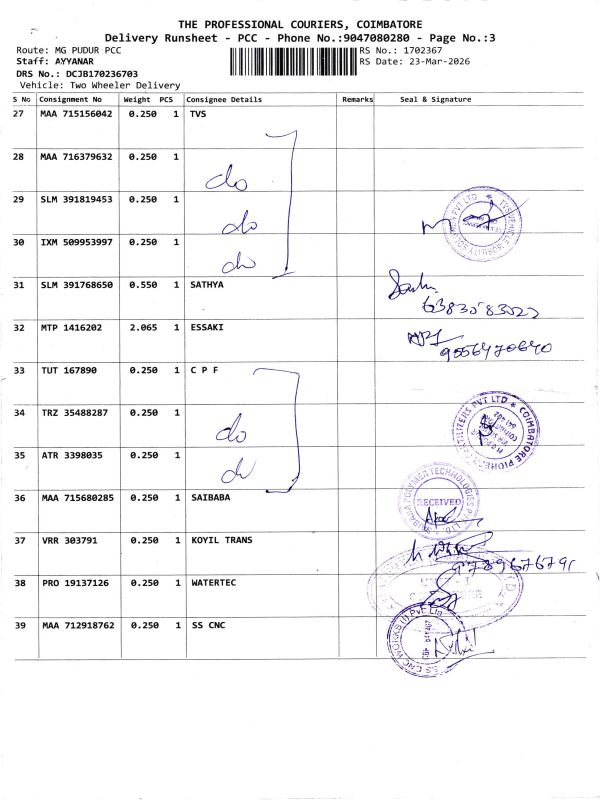 THE PROFESSIONAL COURIERS, COIMBATORE
Delivery Runsheet - PCC - Phone No.:9047080280 - Page No.:3
Route: MG PUDUR PCC RS No.: 1702367
Staff: AYYANAR RS Date: 23-Mar-2026
DRS No.: DCJB170236703
Vehicle: Two Wheeler Delivery
S No Consignment No Weight PCS Consignee Details Remarks Seal & Signature
27 MAA 715156042 0.250 1 TVS
28 MAA 716379632 0.250 1
do
29 SLM 391819453 0.250 1
do
30 IXM 509953997 0.250 1
do
31 SLM 391768650 0.550 1 SATHYA
32 MTP 1416202 2.065 1 ESSAKI
9556470640
33 TUT 167890 0.250 1 C P F
34 TRZ 35488287 0.250 1
do
35 ATR 3398035 0.250 1
do
36 MAA 715680285 0.250 1 SAIBABA
RECEIVED
37 VRR 303791 0.250 1 KOYIL TRANS
9789676791
38 PRO 19137126 0.250 1 WATERTEC
39 MAA 712918762 0.250 1 SS CNC
SS CNC WORKS (I) Pvt Ltd